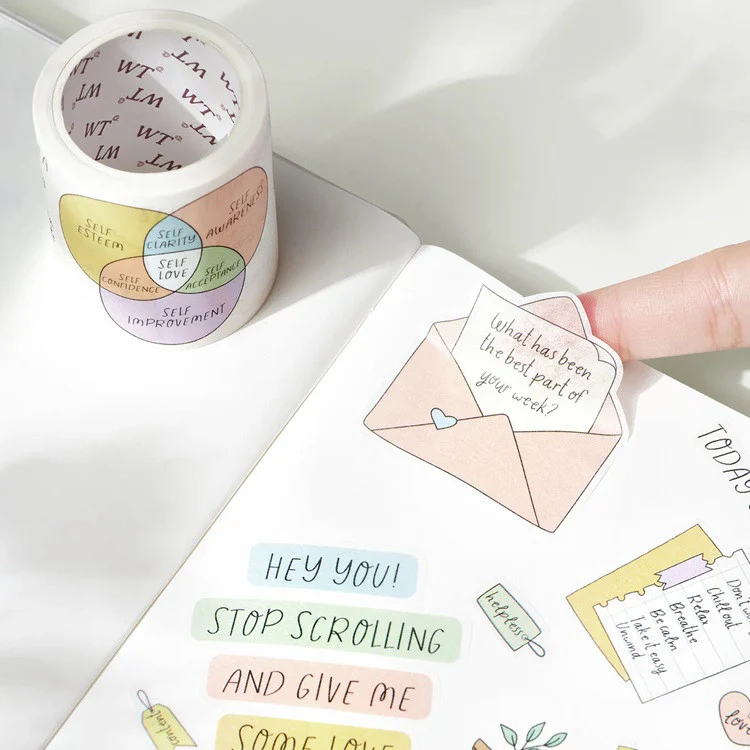 WT
SELF
ESTEEM
SELF
CLARITY
SELF
AWARENESS
SELF
LOVE
SELF
CONFIDENCE
SELF
ACCEPTANCE
SELF
IMPROVEMENT
What has been
the best part of
your week?
TODAY
HEY YOU!
STOP SCROLLING
AND GIVE ME
SOME LOVE
helpless
content
Chill out
Relax
Breathe
Be calm
Take it easy
Unwind